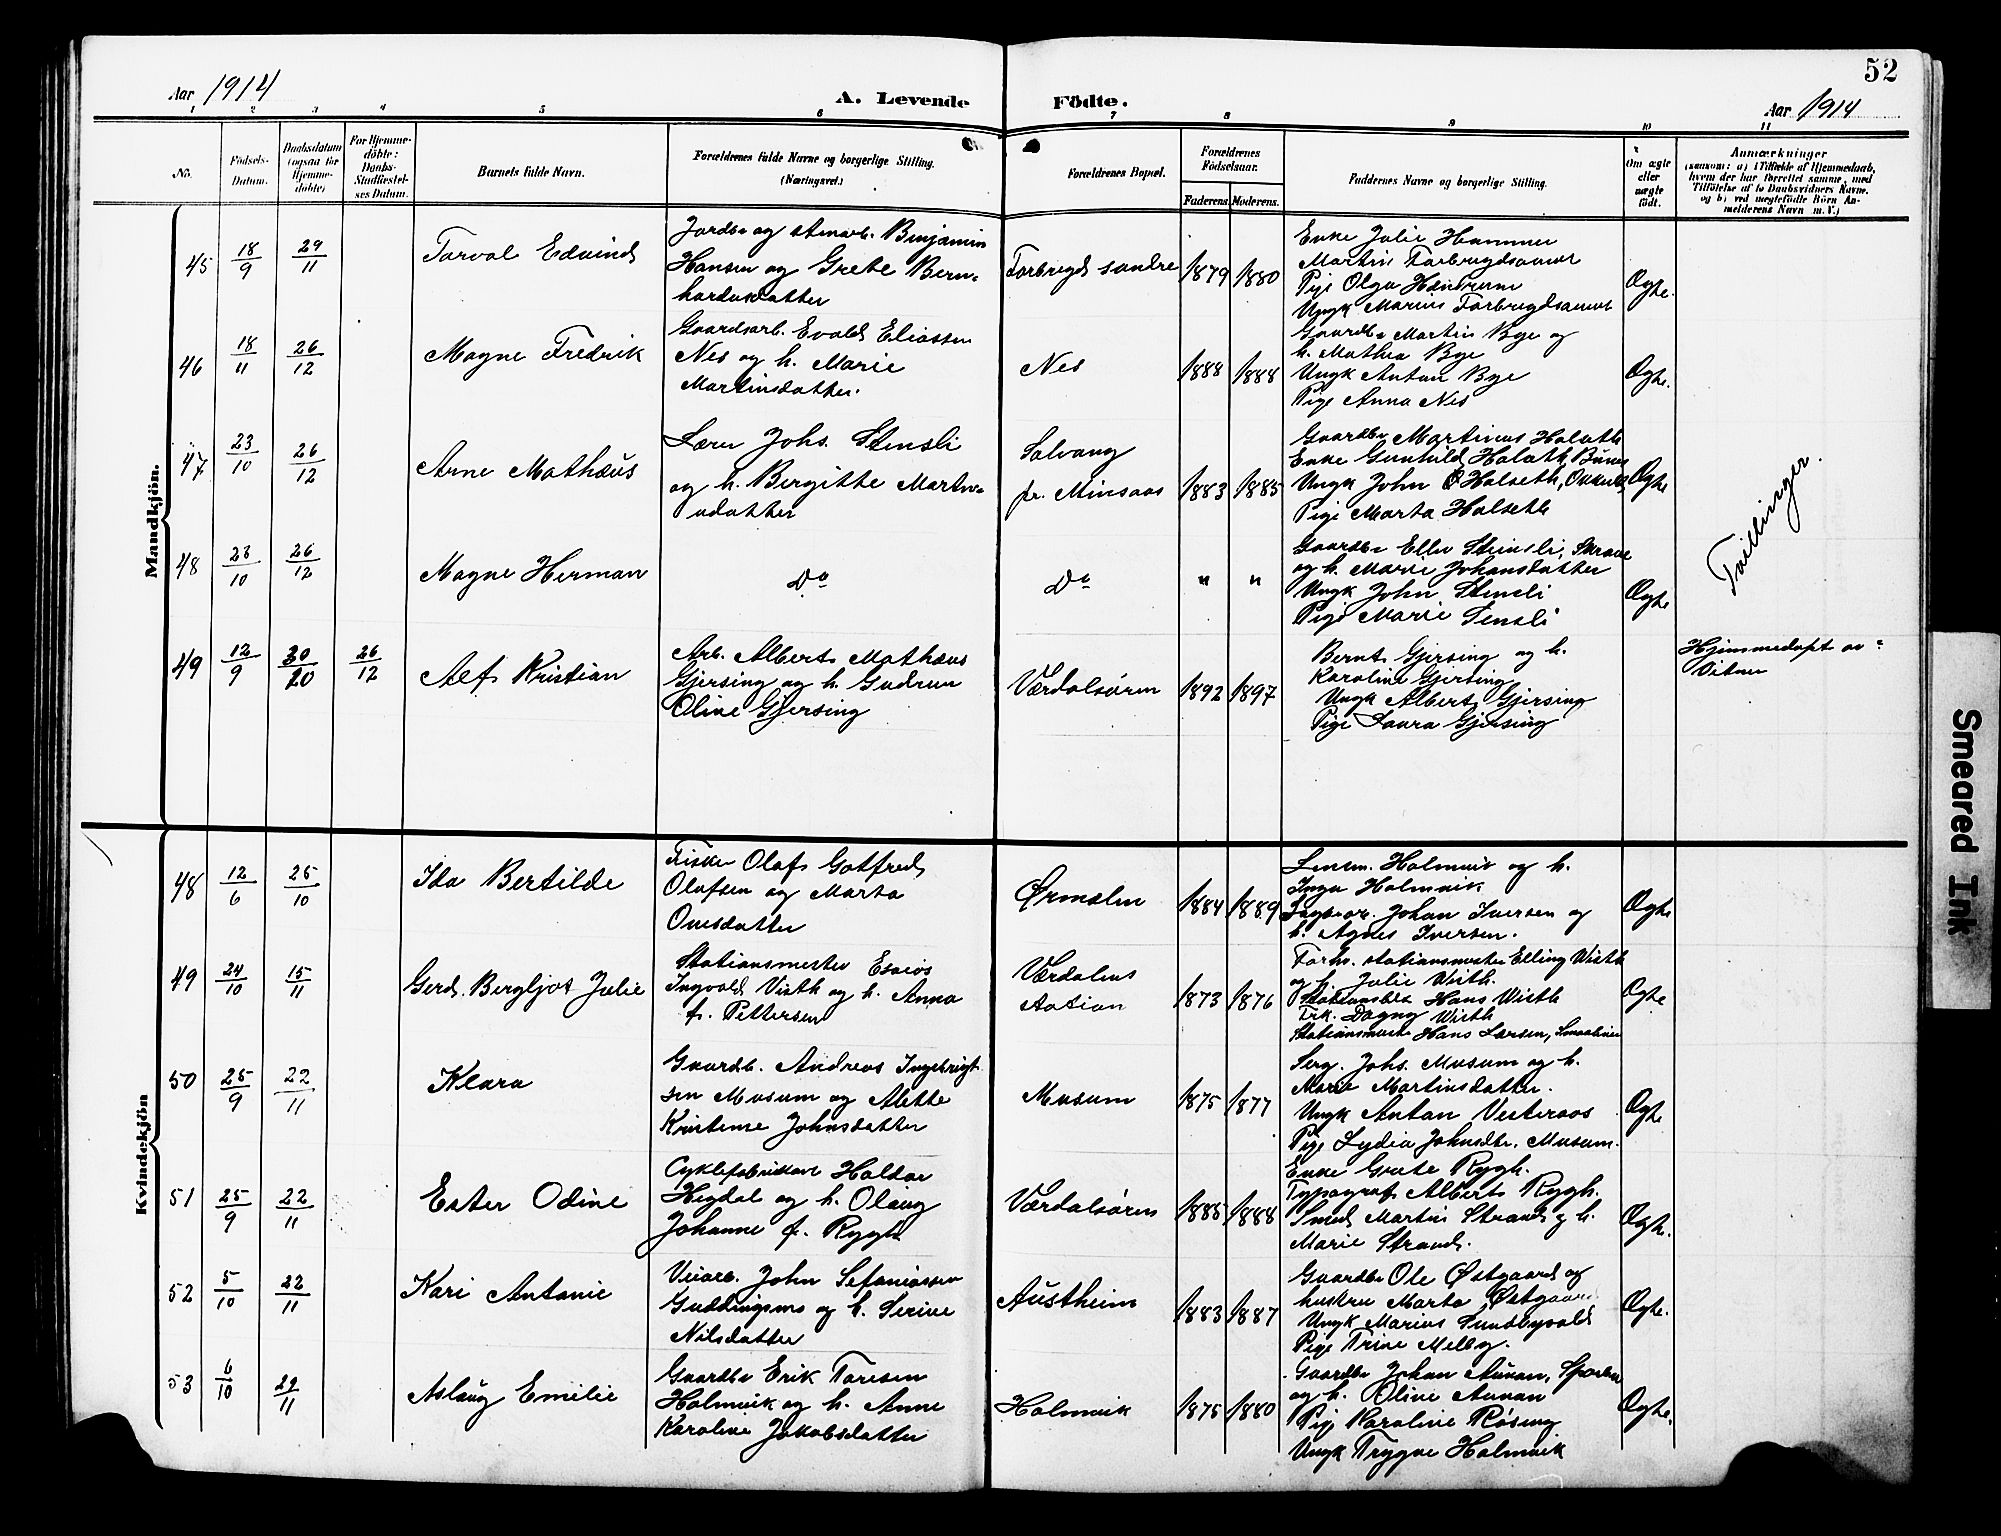 52
Aar 1914
A. Levende Födte.
Aar 1914
1 2 3 4 5 6 7 8 9 10 11
No.
Födsels-
Datum.
Daabsdatum
(ogsaa for
Hjemme-
döbte)
For Hjemme-
döbte:
Daabs-
Stadfæstel-
ses Datum.
Barnets fulde Navn.
Forældrenes fulde Navne og borgerlige Stilling.
(Næringsvei.)
Forældrenes Bopæl.
Forældrenes
Födselsaar.
Faderens. Moderens.
Faddernes Navne og borgerlige Stilling.
Om ægte
eller
uægte
födt.
Anmærkninger
(saasom: a) i Tilfælde af Hjemmedaab,
hvem der har forrettet samme, med
Tilföielse af to Daabsvidners Navne.
og b) ved uægtefödte Börn An-
melderens Navn m. V.)
Mandkjön.
45 18/9 29/11
Torval Edvind
Jordbr og stenarb. Benjamin
Hansen og Grete Bern-
hardusdatter
Forbregd søndre
1879 1880
Enke Julie Hammer
Martin Forbregdsaunet
Pige Olga
Ungk Marius Forbregdsaunet
Ægte.
46 18/11 26/12
Magne Fredrik
Gaardsarb. Evald Eliassen
Nes og h. Marie
Martinsdatter.
Nes
1888 1884
Gaardbr Martin Bye og
h. Mathea Bye
Ungk Anton Bye
Pige Anna Nes
Ægte.
47 23/10 26/12
Arne Mathæus
Lærer Johs. Stensli
og h. Bergitte Martin-
usdatter
Solvang
pr. Minsaas
1883 1885
Gaardbr Martinus Holseth
Enke Gunhild Holseth,
Ungk John Ø Holseth,
Pige Marta Holseth
Ægte
48 23/10 26/12
Magne Herman
Do
Do
" "
Gaardbr Ellev Stensli,
og h. Marie Johansdatter
Ungk John Stensli
Pige Marie Sensli
Ægte
Tvillinger.
49 12/9 30/10 26/12
Alf Kristian
Arb. Albert Mathæus
Gjersing og h. Gudrun
Oline Gjersing
Værdalsøren
1892 1897
Bernt Gjersing og h.
Karoline Gjersing
Ungk Albert Gjersing
Pige Laura Gjersing
Hjemmedøpt av
Kvindekjön
48 12/6 25/10
Ida Bertilde
Fisker Olaf Gotfred
Olafsen og Marta
Ovesdatter
Ørmelen
1884 1889
Lensm. Holmvik og h.
Inga Holmvik
Johan Iversen og
h. Agnes Iversen.
Ægte
49 24/10 15/11
Gerd Bergljot Julie
Stationsmester Esaias
Ingvald Wisth og h. Anna
f. Pettersen
Værdalens
station
1873 1876
Forh. stationsmester Elling Wisth
og h. Julie Wisth.
Hans Wisth
Frk. Dagny Wisth
Stationsmester Hans Larsen,
Ægte
50 25/9 22/11
Klara
Gaardb. Andreas Ingebrigt-
sen Musum og Alette
Kristense Johnsdatter
Musum
1875 1877
Serg. Johs. Musum og h.
Marie Martinsdatter.
Ungk Anton Vesteraas
Pige Lydia Johnsdtr. Musum.
Ægte
51 25/9 22/11
Ester Odine
Cyklefabrikant Haldor
Hegdal og h. Olaug
Johanne f. Rygh
Værdalsøren
1885 1888
Enke Grete Rygh.
Typograf Albert Rygh.
Smed Martin Strand & h.
Marie Strand.
Ægte.
52 5/10 22/11
Kari Antonie
Veiarb. John Sefaniassen
Guddingsmo og h. Serine
Nilsdatter
Austheim
1883 1887
Gaardbr Ole Østgaard og
hustru Marta Østgaard
Ungk Marius Sundbyvald
Pige Trine Melby.
Ægte.
53 6/10 29/11
Aslaug Emilie
Gaardbr Erik Toresen
Holmvik og h. Anne
Karoline Jakobsdatter
Holmvik
1875 1880
Gaardbr Johan Aunan,
og h. Oline Aunan
Pige Karoline Røsing
Ungk Trygve Holmvik
Ægte.
Smeared Ink